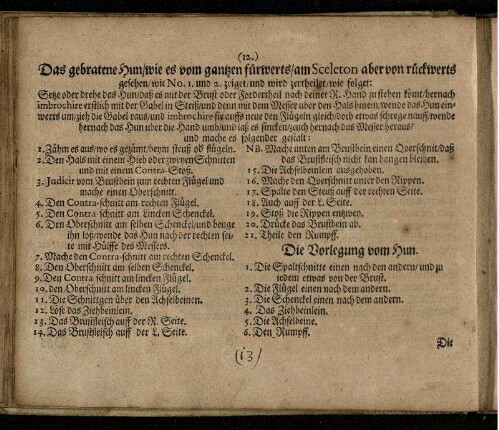 (12.)
Das gebratene Hun/wie es vom gantzen fürwerts/am Sceleton aber von rückwerts
gesehen/wie No. 1. und 2. zeiget/und wird zertheilet/wie folget:
Setze oder drehe das Hun/daß es mit der Brust oder Fordertheil nach deiner R. Hand zu stehen kömt/hernach
imbrochire erstlich mit der Gabel in Steiß/und denn mit dem Messer über den Hals hinein/wende das Hun ein-
werts um/zieh die Gabel raus/und imbrochire sie auffs neue den Flügeln gleich/doch etwas schrege nauff/wende
hernach das Hun über die Hand umb/und laß es sincken/zeuch hernach das Messer heraus/
und mache es folgender gestalt:
1. Zähm es aus/wo es gezämt/beym steuß od flügeln.
2. Den Hals mit einem Hieb oder zweyen Schnitten
und mit einem Contra-Stoß.
3. Judicir vom Brustbein zum rechten Flügel und
mache einen Oberschnitt.
4. Den Contra-schnitt am rechten Flügel.
5. Den Contra-schnitt am Lincken Schenckel.
6. Den Oberschnitt am selben Schenckel/und beuge
ihn loß/wende das Hun nach der rechten sei-
te mit Hülffe des Messers.
7. Mache den Contra-schnitt am rechten Schenckel.
8. Den Oberschnitt am selben Schenckel.
9. Den Contra-schnitt am lincken Flügel.
10. den Oberschnitt am lincken Flügel.
11. Die Schnittgen über den Achselbeinen.
12. Löse das Ziehbeinlein.
13. Das Brustfleisch auff der R. Seite.
14. Das Brustfleisch auff der L. Seite.
NB. Mache unten am Brustbein einen Querschnit/daß
das Brustfleisch nicht kan hangen bleiben.
15. Die Achselbeinlein ausgehoben.
16. Mache den Qverschnitt unter den Rippen.
17. Spalte den Steuß auff der rechten Seite.
18. Auch auff der L. Seite.
19. Stoß die Rippen entzwey.
20. Drücke das Brustbein ab.
21. Theile den Rumpff.
Die Vorlegung vom Hun.
1. Die Spaltschnitte einen nach den andern/und zu
iedem etwas von der Brust.
2. Die Flügel einen nach dem andern.
3. Die Schenckel einen nach dem andern.
4. Das Ziehbeinlein.
5. Die Achselbeine.
6. Den Rumpff.
Die
(13/